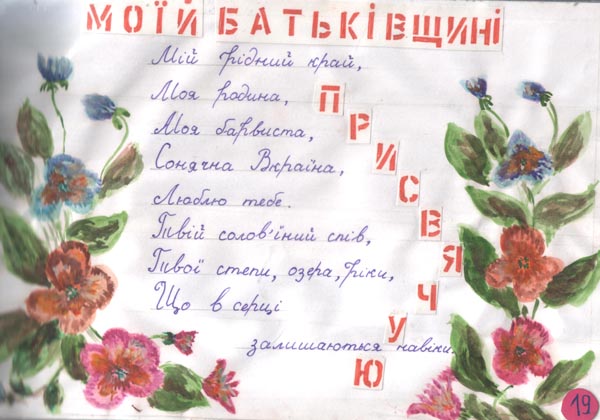 МОЇЙ БАТЬКІВЩИНІ
ПРИСВЯЧУЮ
Мій рідний край,
Моя родина,
Моя барвиста,
Сонячна Вкраїна,
Люблю тебе.
Твій солов'їний спів,
Твої степи, озера, ріки,
Що в серці
залишаються навіки.
19